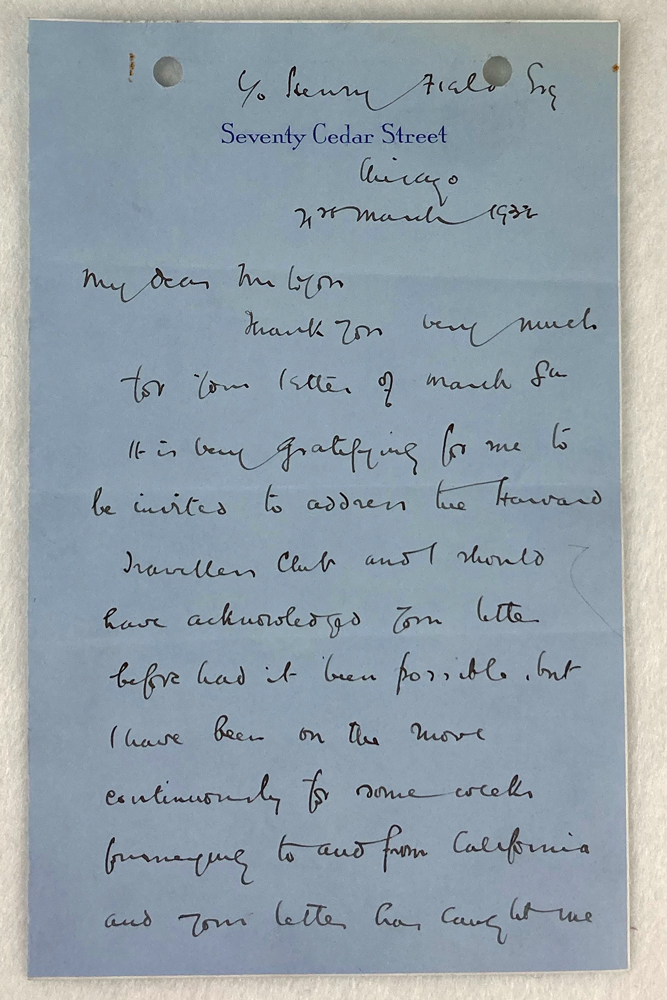 c/o Henry Field Esq
Seventy Cedar Street
Chicago
March 1932
My dear Mr Lyon
Thank you very much
for your letter of March 8th
It is very gratifying for me to
be invited to address the Harvard
Travellers Club and I should
have acknowledged your letter
before had it been possible, but
I have been on the move
continuously for some weeks
journeying to and from California
and your letter has caught me